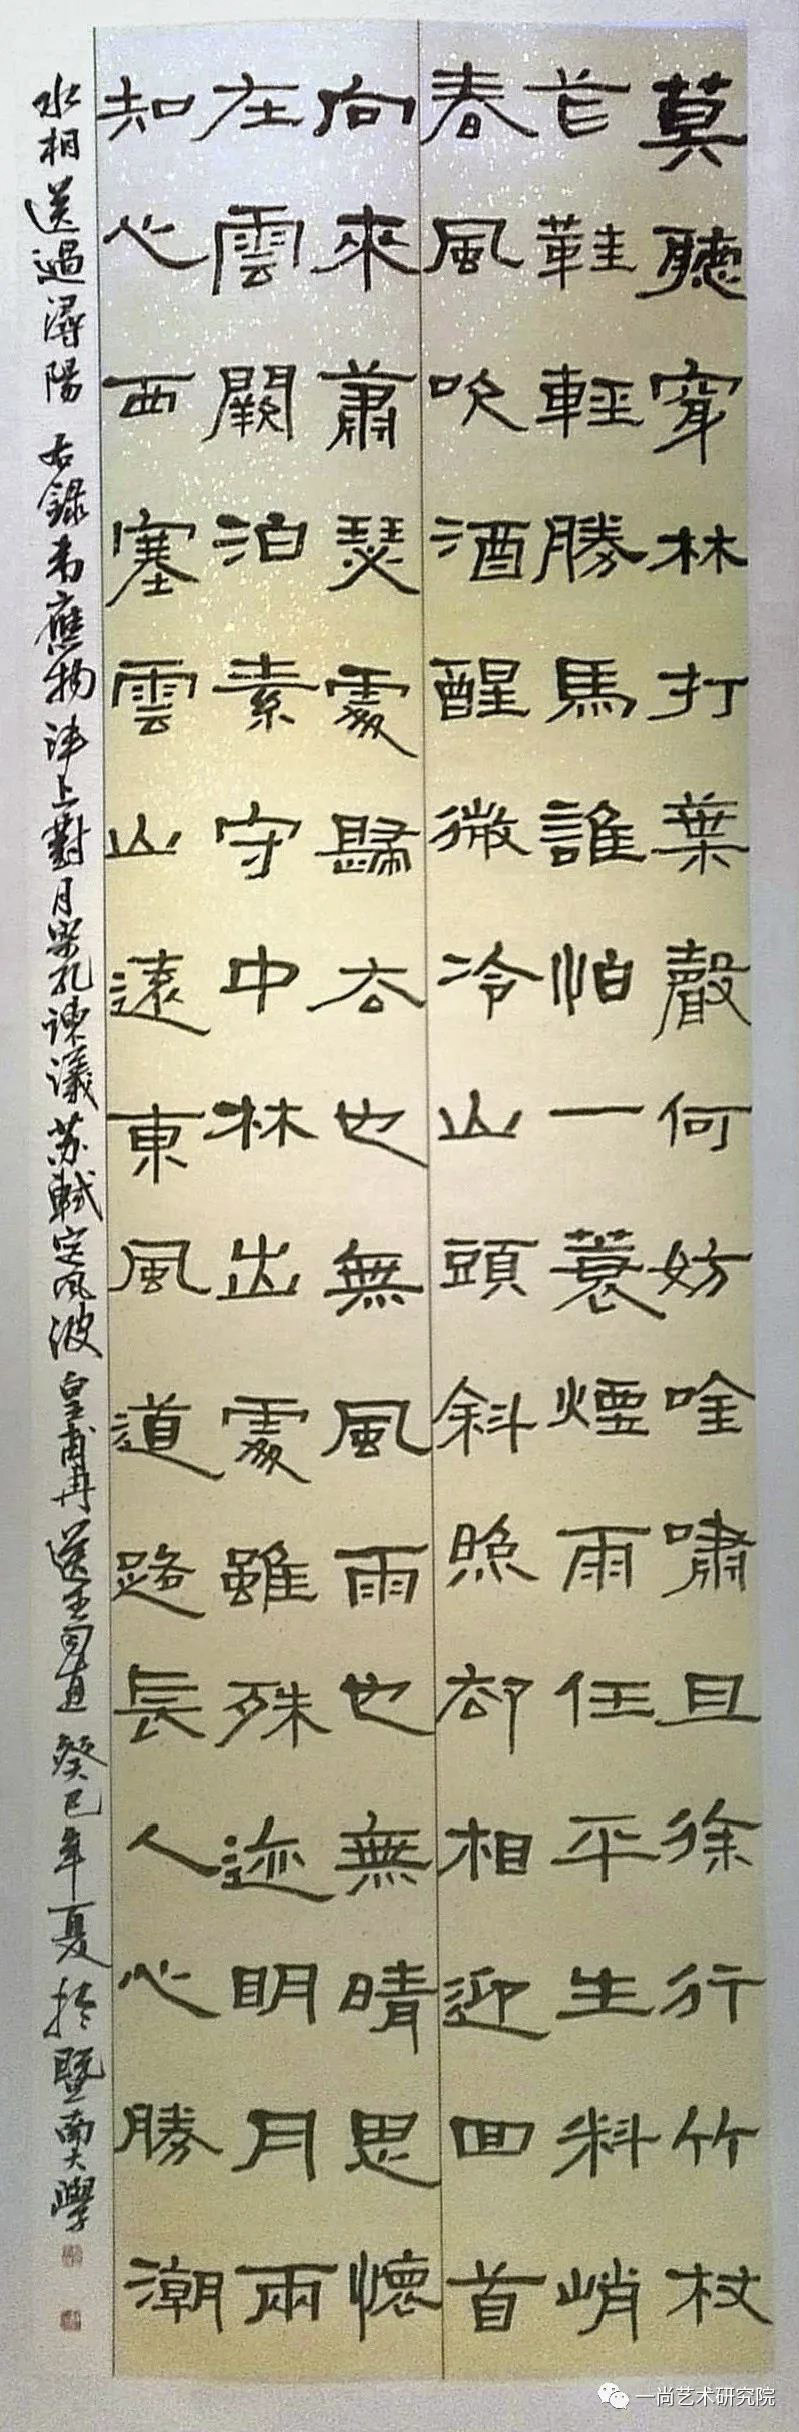 莫聽穿林打葉聲何妨唫嘯且徐行竹杖
芒鞋輕勝馬誰怕一蓑煙雨任平生料峭
春風吹酒醒微冷山頭斜照卻相迎回首
向來蕭瑟處歸去也無風雨也無晴思懷
在雲闕泊素守中林出處雖殊迹明月兩
知心西塞雲山遠東風道路長人心勝潮
水相送過潯陽 右錄韋應物沣上對月寄孔諫議苏軾定風波皇甫冉送王司直 癸巳年夏於暨南大學
一尚艺术研究院